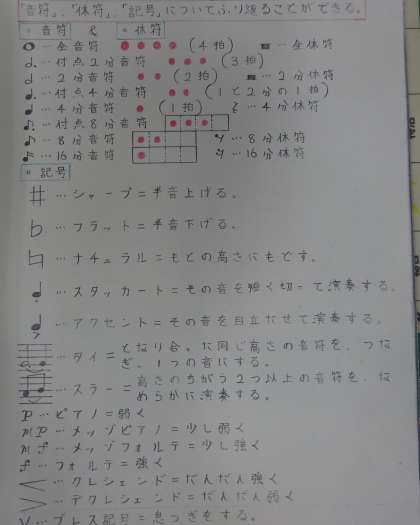 「音符」、「休符」、「記号」についてふり返ることができる。
・音符 と ・休符
…全音符 (4拍) …全休符
…付点2分音符 (3拍)
…2分音符 (2拍) …2分休符
…付点4分音符 (1と2分の1拍)
…4分音符 (1拍) …4分休符
…付点8分音符
…8分音符 …8分休符
…16分音符 …16分休符
・記号
♯…シャープ=半音上げる。
♭…フラット=半音下げる。
♮…ナチュラル=もとの高さにもどす。
…スタッカート=その音を短く切って演奏する。
…アクセント=その音を目立たせて演奏する。
…タイ=となり合った同じ高さの音符を、つなぎ、1つの音にする。
…スラー=高さのちがう2つ以上の音符を、なめらかに演奏する。
p…ピアノ=弱く
mp…メッゾピアノ=少し弱く
mf…メッゾフォルテ=少し強く
f…フォルテ=強く
＜…クレシェンド=だんだん強く
＞…デクレシェンド=だんだん弱く
V…ブレス記号=息つぎをする。